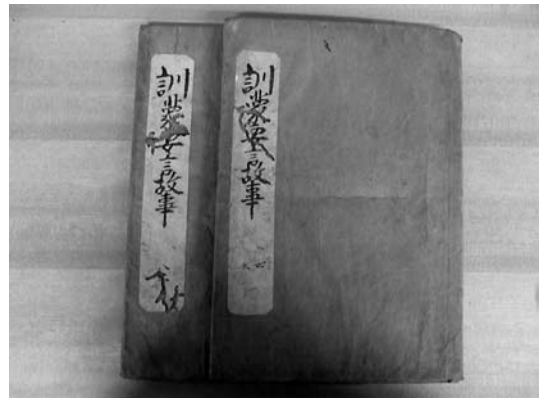 訓蒙要言故事
訓蒙要言故事